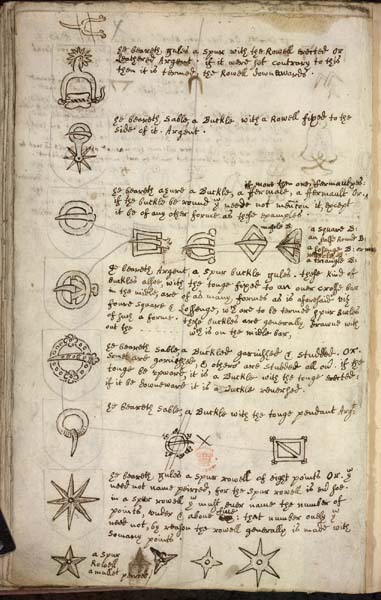 he beareth gules a Spur with the Rowell erected Or
Leathered Argent. if it were sett contrary to this
then it is termed, the Rowell downewards.
he beareth Sable, a Buckle with a Rowell fixed to the
side of it. Argent.
if more then one,
he beareth azure a Buckle, a fermale, a fermault Or.
if the buckle be round y need not mention it, except
it be of any other forme as these examples
a square B:
an halfe Round B:
a Losenge B:
a triangle B:
he beareth Argent, a spur buckle gules. these kind of
buckles allso, with the tonge fixed to an over crosse bar
in the midle, are of as many formes as is aforesaid viz
foure square & Losenge, wch are to be termed Spur Buckles
of such a forme. these buckles are generally drawne with
out the wch is on the midle bar,
he beareth Sable a Buckle garnished & Studded. Or.
some are garnished, & others are studded all over. if the
tonge be upward, it is a Buckle with the tonge erected:
if it be downeward it is a Buckle reversed.
he beareth Sable, a Buckle with the tonge pendant Arg:
he beareth gules a Spur rowell of eight points Or. y
need not name peirced, for the Spur rowell is ever soe.
in a Spur rowell y must ever name the number of
points, under & above five; that number onely y
need not, by reason the rowell generally is made with
soe many points
a Spur
Rowell
a mullet peirced